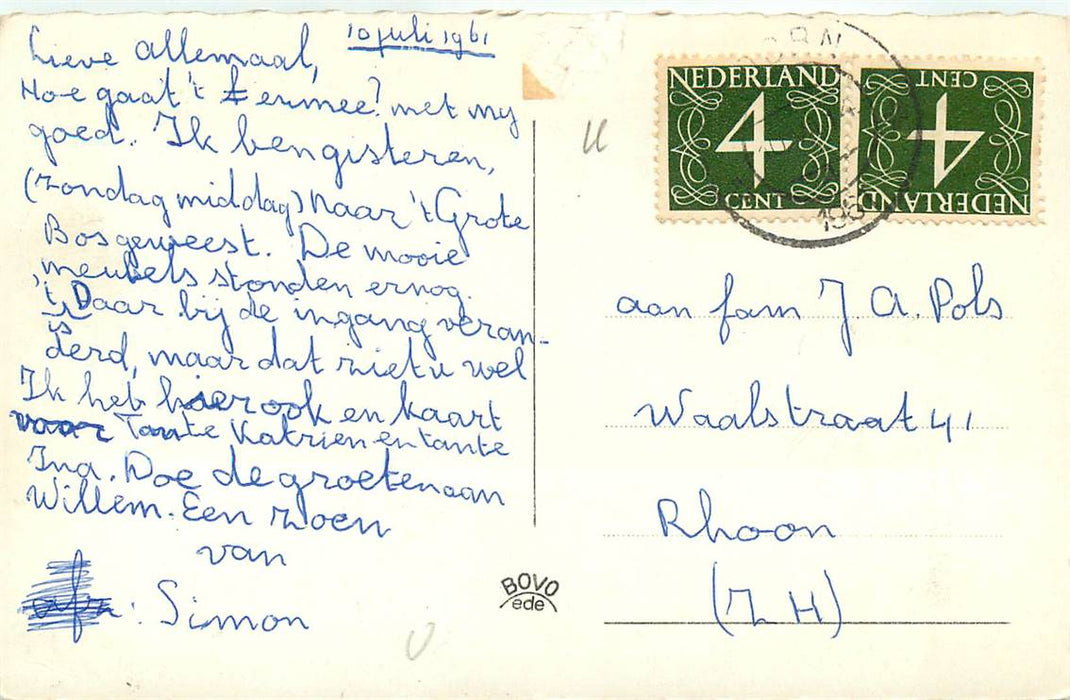 10 juli 1961
Lieve allemaal,
Hoe gaat 't ermee? met my
goed. Ik ben gisteren,
(zondag middag) naar 't Grote
Bos geweest. De mooie
meubels stonden er nog.
't Is Daar bij de ingang veran-
derd, maar dat ziet u wel
Ik heb hier ook en kaart
voor Tante Katrien en tante
Ina. Doe de groeten aan
Willem. Een zoen
van
: Simon
NEDERLAND
4
CENT
NEDERLAND
4
CENT
aan fam J. A. Pols
Waalstraat 41
Rhoon
(Z H)
BOVO
ede